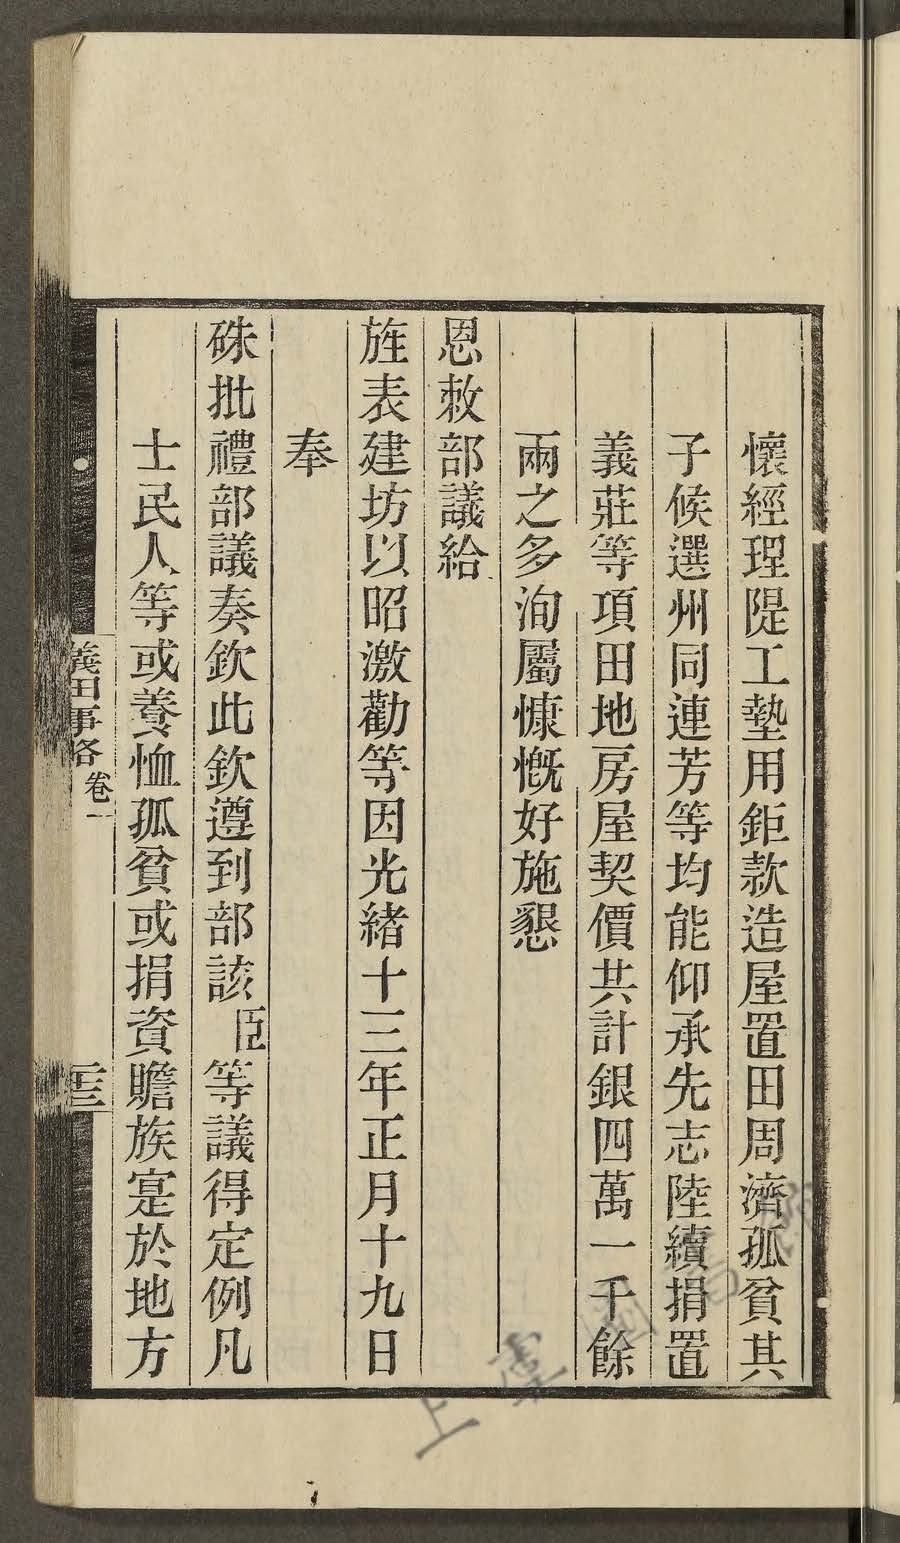 懷經理隄工墊用鉅款造屋置田周濟孤貧其
子候選州同連芳等均能仰承先志陸續捐置
義莊等項田地房屋契價共計銀四萬一千餘
兩之多洵屬慷慨好施懇
恩敕部議給
旌表建坊以昭激勸等因光緒十三年正月十九日
奉
硃批禮部議奏欽此欽遵到部該臣等議得定例凡
士民人等或養恤孤貧或捐資贍族寔於地方
義田事略 卷一
二十三
上虞圖書館